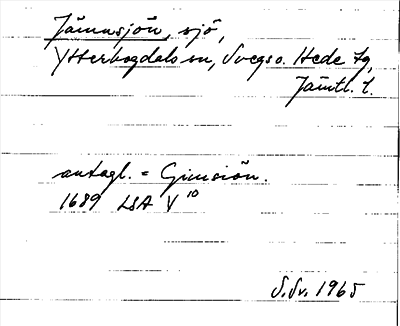 Jämnsjön, sjö,
Ytterhogdals sn, Svegs o. Hede tg,
Jämtl. l.
antagl. = Gimsiön.
1689 LSA V 10
S.Sv. 1965